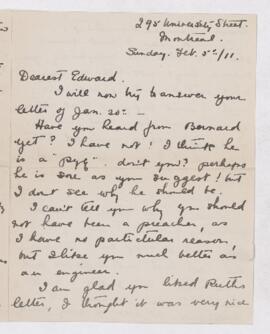 295 University Street.
Montreal.
Sunday. Feb. 5th/11.
Dearest Edward.
I will now try to answer your
letter of Jan. 30th —
Have you heard from Bernard
yet? I have not! I think he
is a "pyg". don't you? perhaps
he is sore as you suggest! but
I don't see why he should be.
I can't tell you why you should
not have been a preacher, as
I have no particular reason,
but I like you much better as
an engineer.
I am glad you liked Ruth's
letter, I thought it was very nice